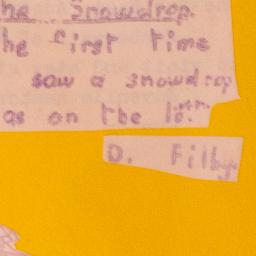 he Snowdrop.
he first time
saw a snowdrop
as on the 10th.
D. Filby.